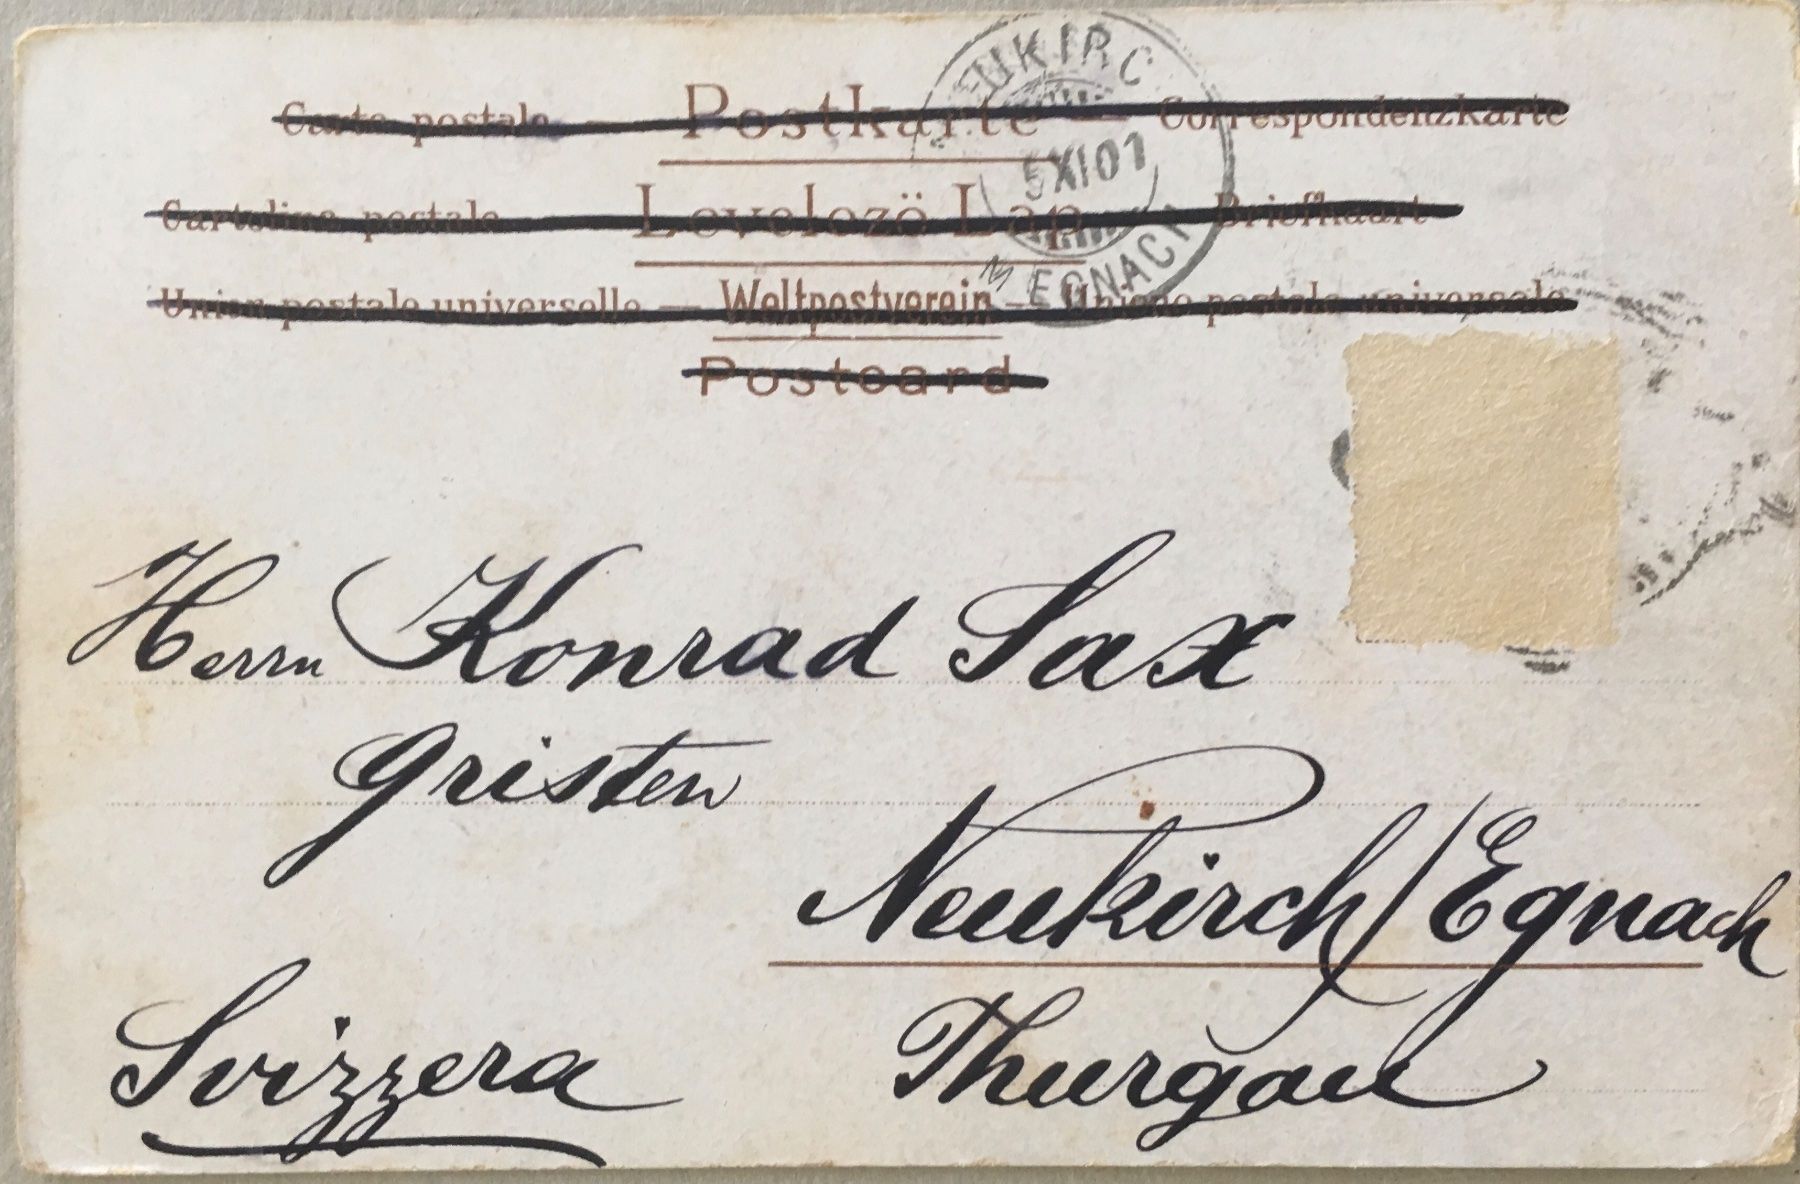 Carte postale — Postkarte — Correspondenzkarte
Cartolina postale Levelező Lap Briefkaart
Union postale universelle — Weltpostverein — Unione postale universale
Postcard
EUKIRC
5 XI 01
EGNACH
Herrn Konrad Sax
Gristen
Neukirch/Egnach
Svizzera Thurgau